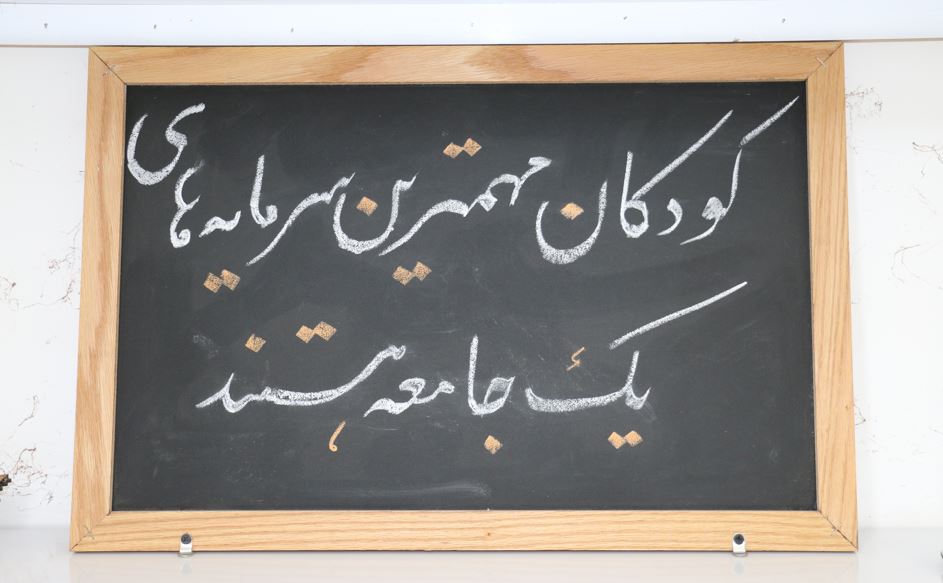 کودکان مهمترین سرمایه های
یک جامعه هستند